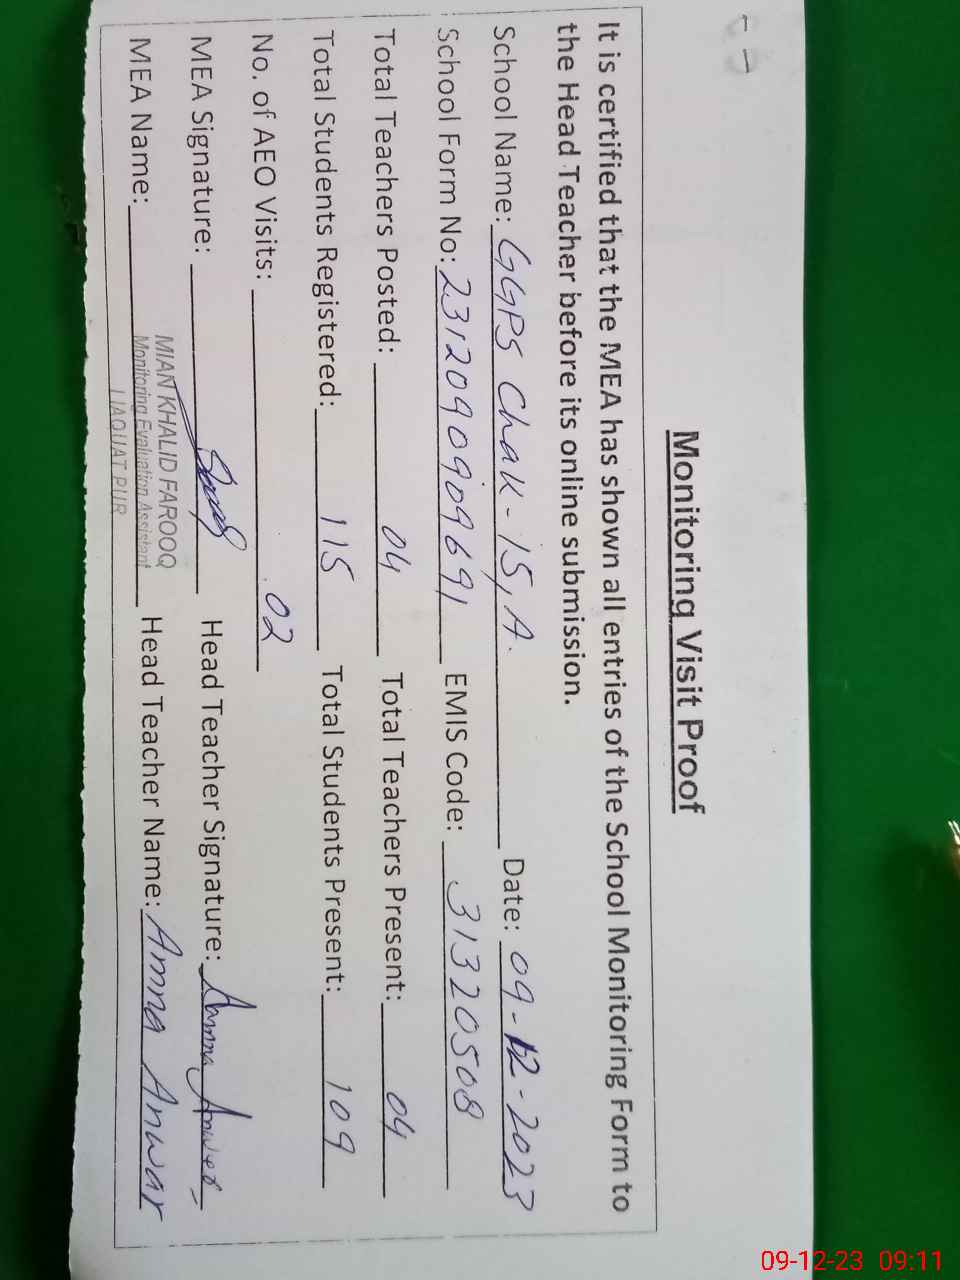 Monitoring Visit Proof
It is certified that the MEA has shown all entries of the School Monitoring Form to
the Head Teacher before its online submission.
School Name: GGPS Chak-15, A. Date: 09-12-2023
School Form No: 2312090909691 EMIS Code: 31320508
Total Teachers Posted: 04 Total Teachers Present: 04
Total Students Registered: 115 Total Students Present: 109
No. of AEO Visits: 02
MEA Signature: Head Teacher Signature: Amna Anwer
MEA Name: MIAN KHALID FAROOQ Head Teacher Name: Amna Anwar
Monitoring Evaluation Assistant
LIAQUAT PUR
09-12-23 09:11